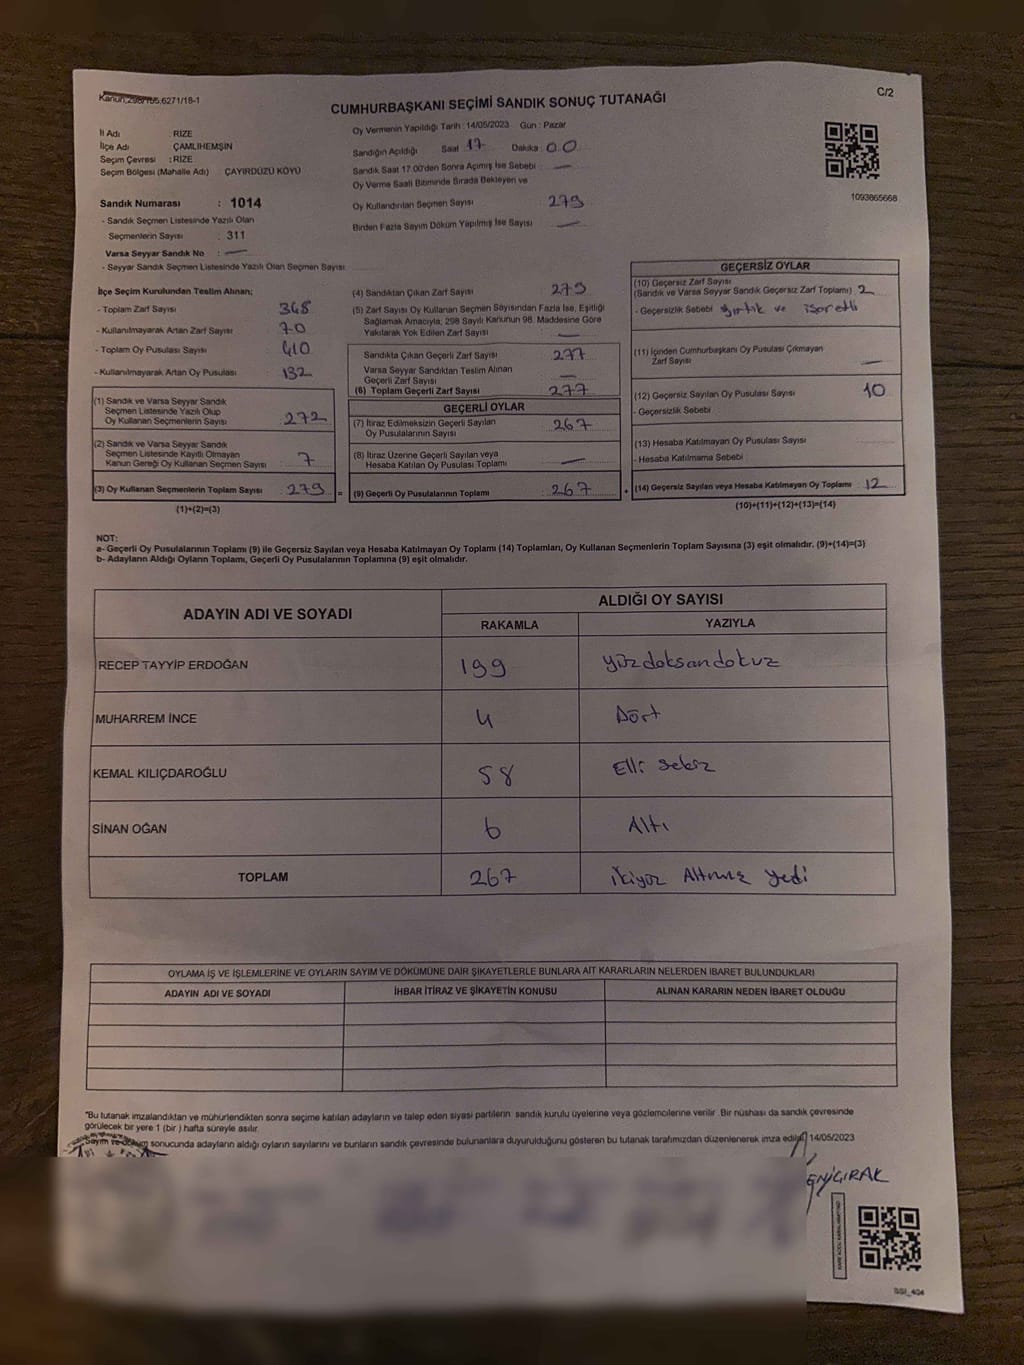 Kanun;298/105.6271/18-1
C/2
CUMHURBAŞKANI SEÇİMİ SANDIK SONUÇ TUTANAĞI
İl Adı : RİZE
İlçe Adı ÇAMLIHEMŞİN
Seçim Çevresi : RİZE
Seçim Bölgesi (Mahalle Adı) ÇAYIRDÜZÜ KÖYÜ
Sandık Numarası : 1014
- Sandık Seçmen Listesinde Yazılı Olan
Seçmenlerin Sayısı : 311
Varsa Seyyar Sandık No : —
- Seyyar Sandık Seçmen Listesinde Yazılı Olan Seçmen Sayısı
Oy Vermenin Yapıldığı Tarih : 14/05/2023 Gün : Pazar
Sandığın Açıldığı Saat 17 Dakika 00
Sandık Saat 17.00'den Sonra Açımış İse Sebebi —
Oy Verme Saati Bitiminde Sırada Bekleyen ve
Oy Kullandırılan Seçmen Sayısı 279
Birden Fazla Sayım Döküm Yapılmış İse Sayısı —
1093865668
İlçe Seçim Kurulundan Teslim Alınan;
- Toplam Zarf Sayısı 348
- Kullanılmayarak Artan Zarf Sayısı 70
- Toplam Oy Pusulası Sayısı 410
- Kullanılmayarak Artan Oy Pusulası 132
(1) Sandık ve Varsa Seyyar Sandık
Seçmen Listesinde Yazılı Olup
Oy Kullanan Seçmenlerin Sayısı 272
(2) Sandık ve Varsa Seyyar Sandık
Seçmen Listesinde Kayıtlı Olmayan
Kanun Gereği Oy Kullanan Seçmen Sayısı 7
(3) Oy Kullanan Seçmenlerin Toplam Sayısı 279 =
(1)+(2)=(3)
(4) Sandıktan Çıkan Zarf Sayısı 279
(5) Zarf Sayısı Oy Kullanan Seçmen Sayısından Fazla İse, Eşitliği
Sağlamak Amacıyla; 298 Sayılı Kanunun 98. Maddesine Göre
Yakılarak Yok Edilen Zarf Sayısı —
Sandıkta Çıkan Geçerli Zarf Sayısı 277
Varsa Seyyar Sandıktan Teslim Alınan
Geçerli Zarf Sayısı —
(6) Toplam Geçerli Zarf Sayısı 277
GEÇERLİ OYLAR
(7) İtiraz Edilmeksizin Geçerli Sayılan
Oy Pusulalarının Sayısı 267
(8) İtiraz Üzerine Geçerli Sayılan veya
Hesaba Katılan Oy Pusulası Toplamı —
(9) Geçerli Oy Pusulalarının Toplamı 267 +
GEÇERSİZ OYLAR
(10) Geçersiz Zarf Sayısı
(Sandık ve Varsa Seyyar Sandık Geçersiz Zarf Toplamı) 2
- Geçersizlik Sebebi yırtık ve işaretli
(11) İçinden Cumhurbaşkanı Oy Pusulası Çıkmayan
Zarf Sayısı —
(12) Geçersiz Sayılan Oy Pusulası Sayısı 10
- Geçersizlik Sebebi
(13) Hesaba Katılmayan Oy Pusulası Sayısı
- Hesaba Katılmama Sebebi
(14) Geçersiz Sayılan veya Hesaba Katılmayan Oy Toplamı 12
(10)+(11)+(12)+(13)=(14)
NOT:
a- Geçerli Oy Pusulalarının Toplamı (9) ile Geçersiz Sayılan veya Hesaba Katılmayan Oy Toplamı (14) Toplamları, Oy Kullanan Seçmenlerin Toplam Sayısına (3) eşit olmalıdır. (9)+(14)=(3)
b- Adayların Aldığı Oyların Toplamı, Geçerli Oy Pusulalarının Toplamına (9) eşit olmalıdır.
ADAYIN ADI VE SOYADI ALDIĞI OY SAYISI
RAKAMLA YAZIYLA
RECEP TAYYİP ERDOĞAN 199 yüzdoksandokuz
MUHARREM İNCE 4 Dört
KEMAL KILIÇDAROĞLU 58 Elli sekiz
SİNAN OĞAN 6 Altı
TOPLAM 267 ikiyüz Altmış yedi
OYLAMA İŞ VE İŞLEMLERİNE VE OYLARIN SAYIM VE DÖKÜMÜNE DAİR ŞİKAYETLERLE BUNLARA AİT KARARLARIN NELERDEN İBARET BULUNDUKLARI
ADAYIN ADI VE SOYADI İHBAR İTİRAZ VE ŞİKAYETİN KONUSU ALINAN KARARIN NEDEN İBARET OLDUĞU
"Bu tutanak imzalandıktan ve mühürlendikten sonra seçime katılan adayların ve talep eden siyasi partilerin sandık kurulu üyelerine veya gözlemcilerine verilir. Bir nüshası da sandık çevresinde
görülecek bir yere 1 (bir ) hafta süreyle asılır.
Sayım ve döküm sonucunda adayların aldığı oyların sayılarını ve bunların sandık çevresinde bulunanlara duyurulduğunu gösteren bu tutanak tarafımızdan düzenlenerek imza edildi. 14/05/2023
SSI_404